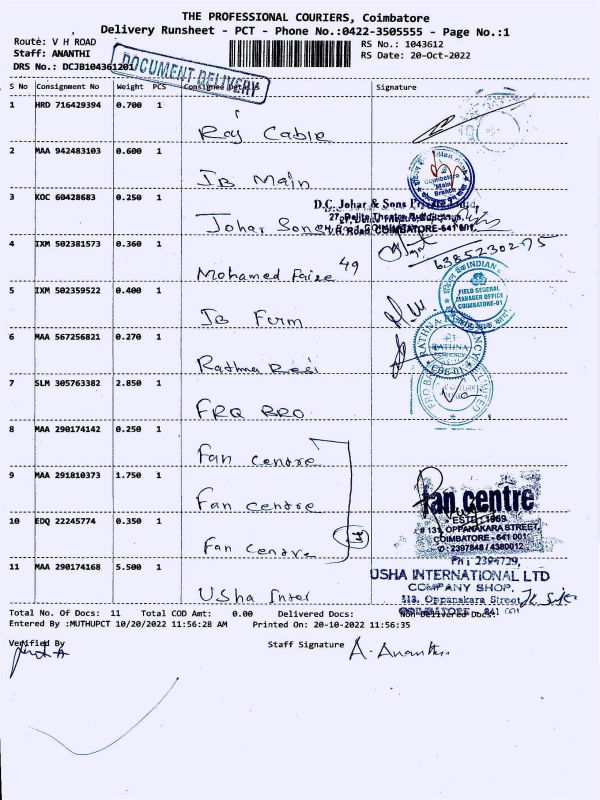 THE PROFESSIONAL COURIERS, Coimbatore
Delivery Runsheet - PCT - Phone No.:0422-3505555 - Page No.:1
Route: V H ROAD
RS No.: 1043612
Staff: ANANTHI
RS Date: 20-Oct-2022
DRS No.: DCJB104361201/
DOCUMENT DELIVERY
S No Consignment No Weight PCS Consignee Details Signature
1 HRD 716429394 0.700 1
Raj Cable
2 MAA 942483103 0.600 1
IB Main
Indian Bank
Coimbatore
Main
Branch
3 KOC 60428683 0.250 1
Johar Sons
D.C. Johar & Sons
COIMBATORE-641 001
4 IXM 502381573 0.360 1
Mohamed Faize 49
6385230275
5 IXM 502359522 0.400 1
IB Firm
INDIAN
FIELD GENERAL
MANAGER OFFICE
COIMBATORE-01
6 MAA 567256821 0.270 1
Rathna Resi
RATHNA
CBE-01
7 SLM 305763382 2.850 1
FRQ BRO
8 MAA 290174142 0.250 1
Fan Centre
9 MAA 291810373 1.750 1
Fan Centre
fan centre
ESTD 1969
# 131, OPPANAKARA STREET,
COIMBATORE - 641 001
✆ : 2397848 / 4380012
10 EDQ 22245774 0.350 1
Fan Centre
11 MAA 290174168 5.500 1
USha Inter
PH : 2394729,
USHA INTERNATIONAL LTD
COMPANY SHOP.
513, Oppanakara Street
COIMBATORE - 641 001
Total No. Of Docs: 11 Total COD Amt: 0.00 Delivered Docs: Non-Delivered Docs:
Entered By :MUTHUPCT 10/20/2022 11:56:28 AM Printed On: 20-10-2022 11:56:35
Verified By
Staff Signature A. Ananthi